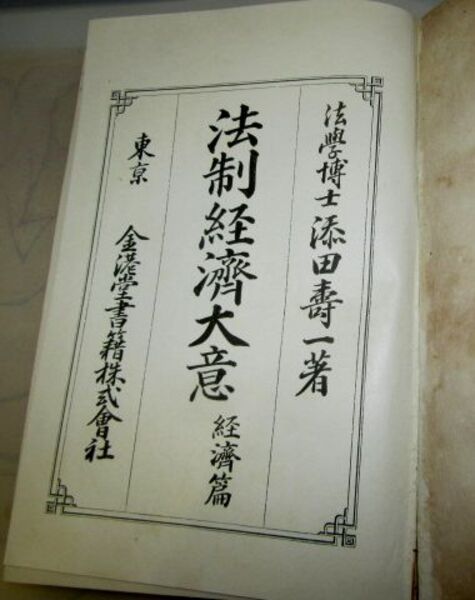 法學博士添田壽一著
法制経濟大意
経濟篇
東京
金港堂書籍株式會社